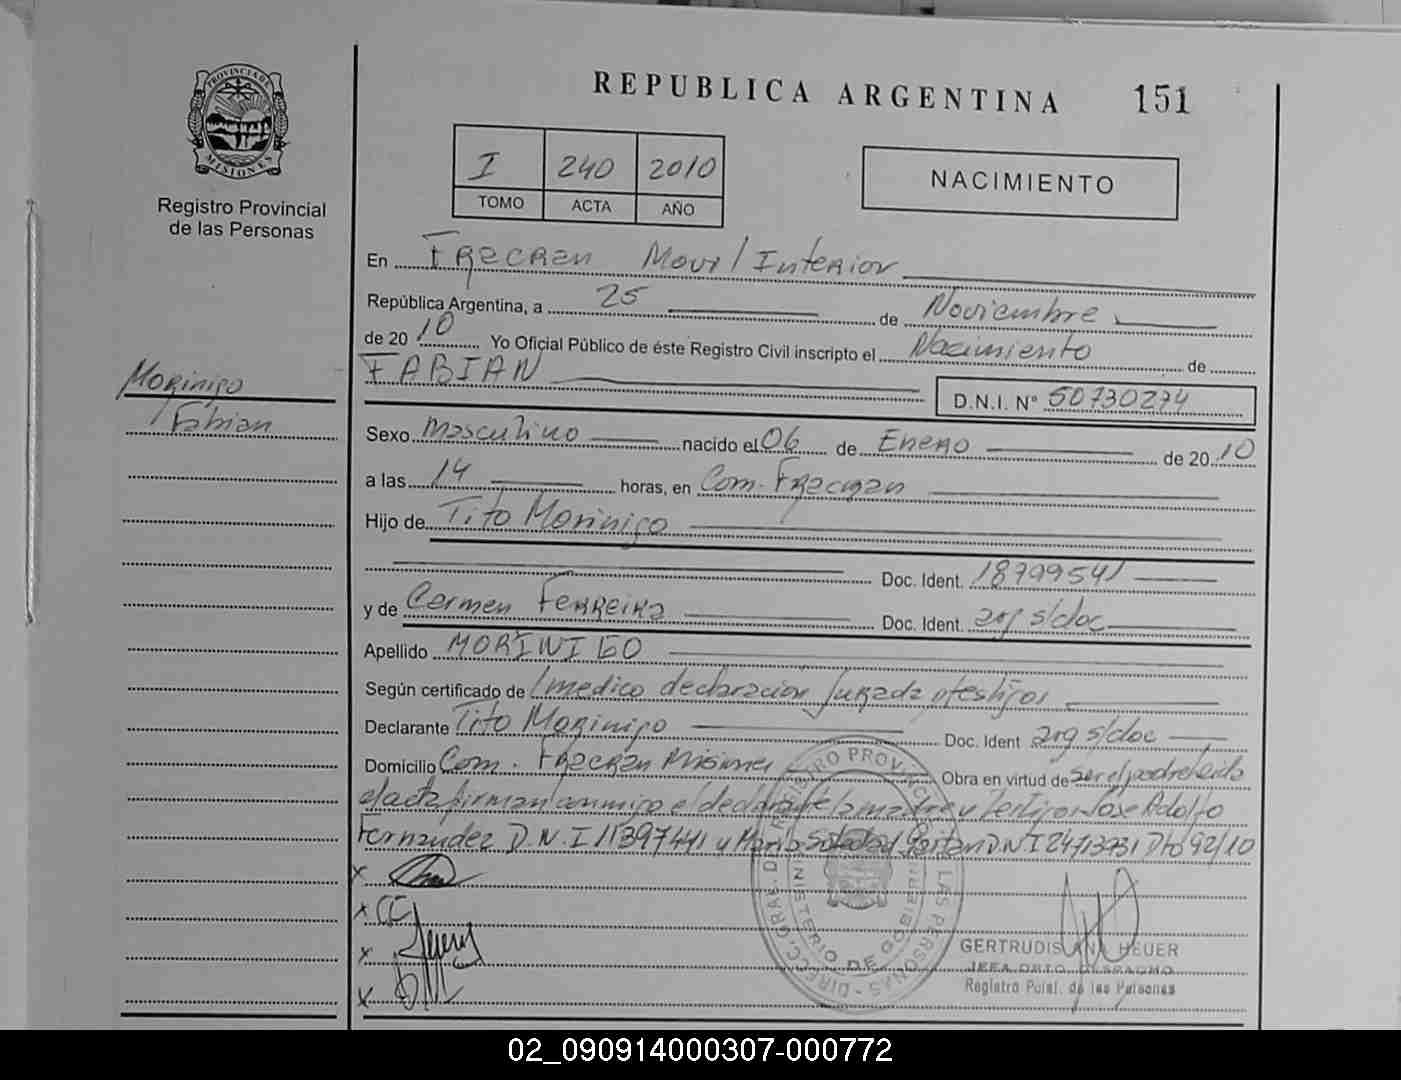 REPUBLICA ARGENTINA 151
PROVINCIA DE
MISIONES
Registro Provincial
de las Personas
I 240 2010
TOMO ACTA AÑO
NACIMIENTO
En Fracran Movil Interior
República Argentina, a 25 de Noviembre
de 20 10 Yo Oficial Público de éste Registro Civil inscripto el Nacimiento de
FABIAN
D.N.I. N° 50730274
Morinigo
Fabian
Sexo Masculino nacido el 06 de Enero de 20 10
a las 14 horas, en Com. Fracran
Hijo de Tito Morinigo
Doc. Ident. 18799541
y de Carmen Ferreira Doc. Ident. arg s/doc
Apellido MORINIGO
Según certificado de /medico declaracion jurada testigos
Declarante Tito Morinigo Doc. Ident arg s/doc
Domicilio Com. Fracran Misiones Obra en virtud de ser el padre leida
el acta firman conmigo el declarante la madre y testigos Jose Adolfo
Fernandez D.N.I 11397441 y Maria Soledad D.N.I 24713731 Dto 92/10
x
x CC
x
x
GERTRUDIS ANA HEUER
JEFA DPTO. DESPACHO
Registro Pcial. de las Personas
02_090914000307-000772